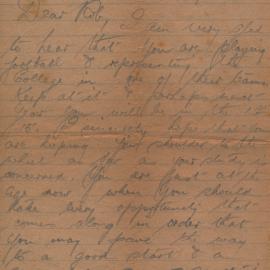 Dear Rob, I am very glad
to hear that you are playing
football & representing the
College in one of their teams
Keep at it & perhaps next
Year you will be in the 1st
I sincerely hope that you
are keeping your shoulder to the
wheel as far as your study is
concerned. You are just at the
age now when you should
take every opportunity that
comes along in order that
you may pave the way
to a good start & a